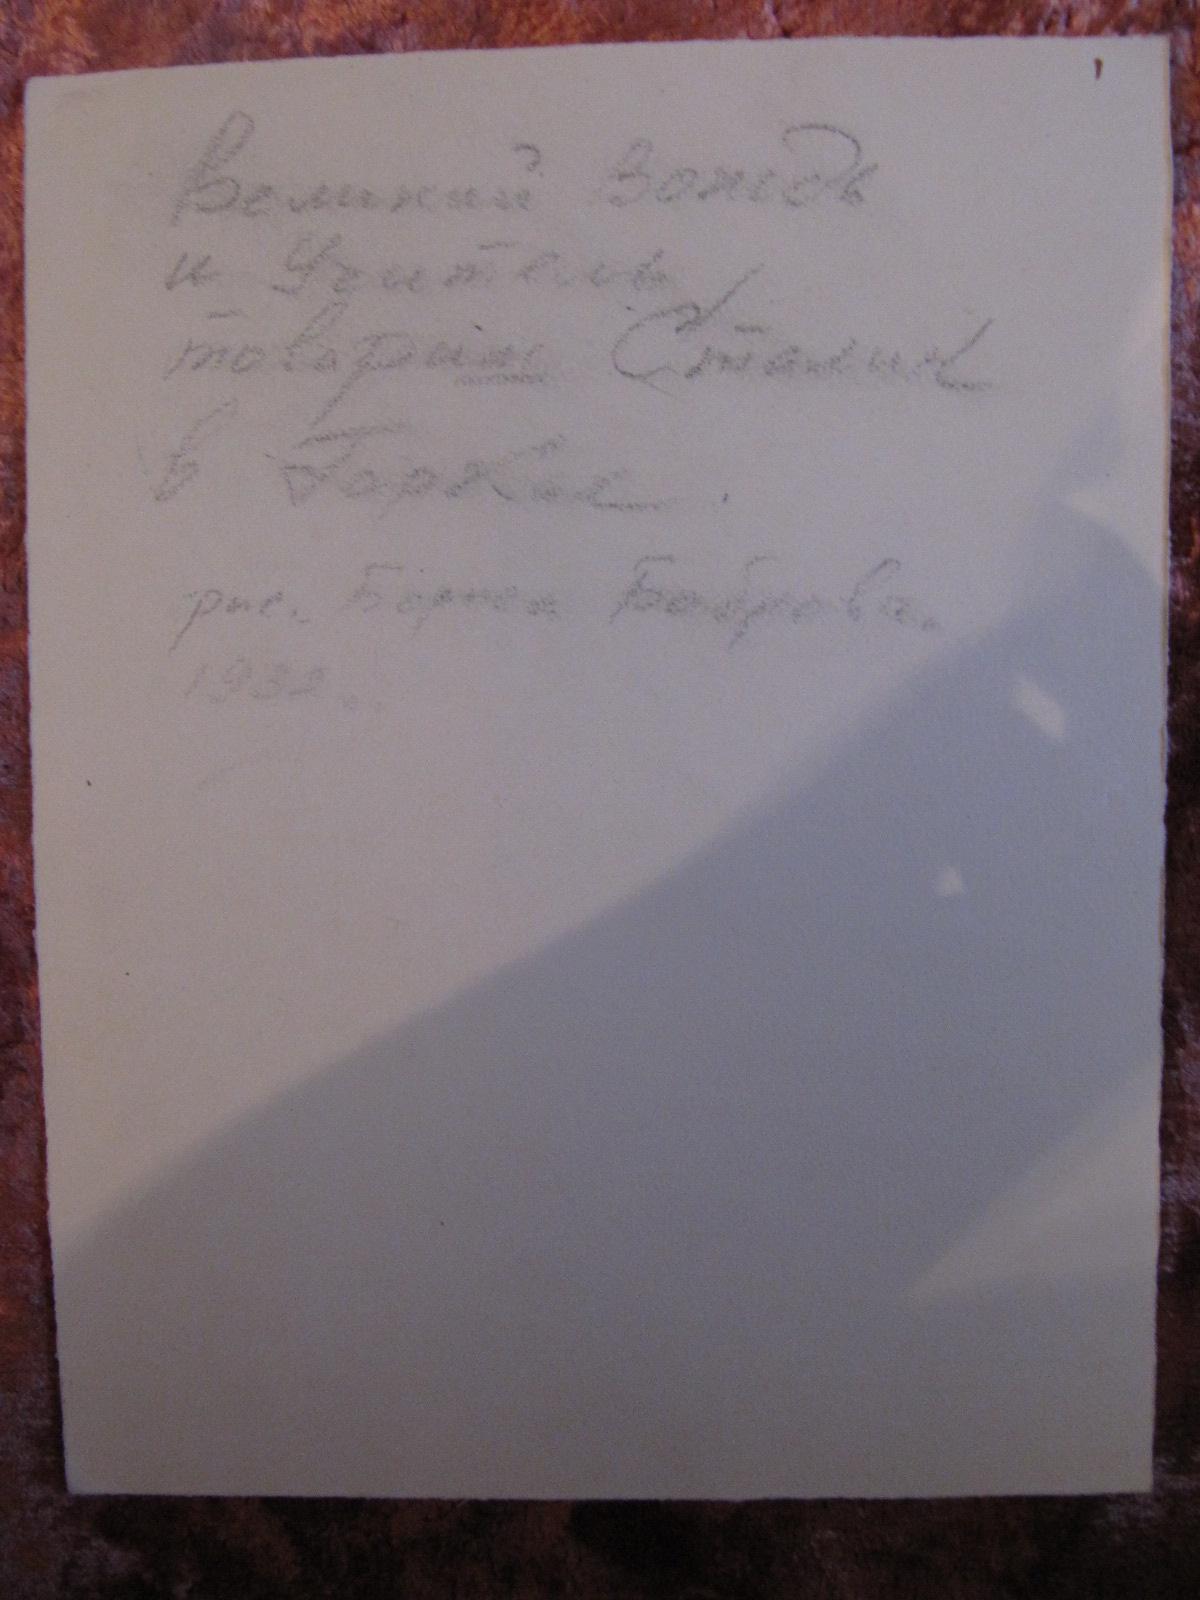 Великий Вождь
и Учитель
товарищ Сталин
в Горках.
рис. Бориса Боброва.
1932.